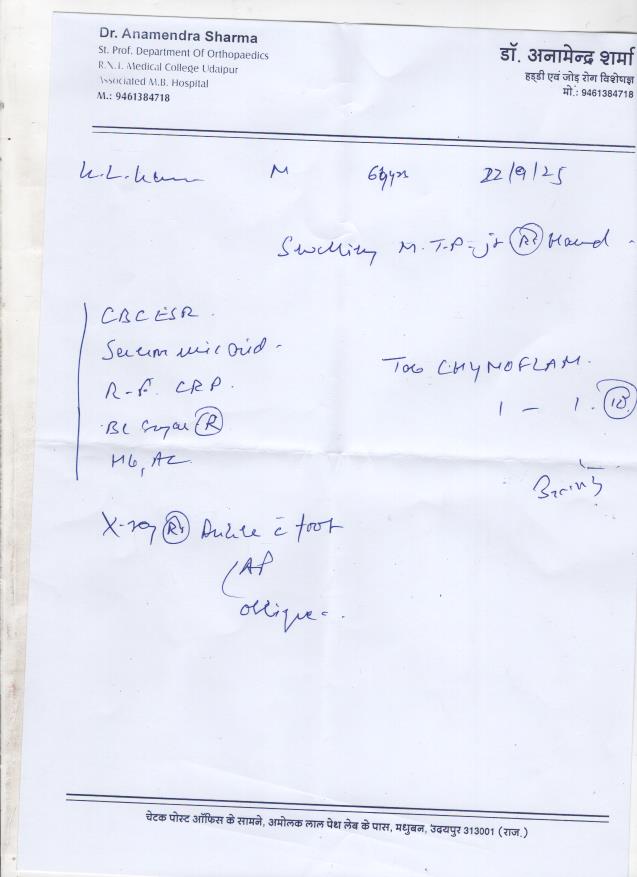 Dr. Anamendra Sharma
St. Prof. Department Of Orthopaedics
R.N.T. Medical College Udaipur
Associated M.B. Hospital
M.: 9461384718
डॉ. अनामेन्द्र शर्मा
हड्डी एवं जोड़ रोग विशेषज्ञ
मो.: 9461384718
M 22/9/25
Swelling M.T.P. jt Rt
CBC ESR
Serum uric acid
R-F. CRP.
Bl Sugar R
Tab CHYMOFLAM.
1 - 1
X-ray Rt Ankle c foot
AP
oblique
चेटक पोस्ट ऑफिस के सामने, अमोलक लाल पेथ लेब के पास, मधुबन, उदयपुर 313001 (राज.)